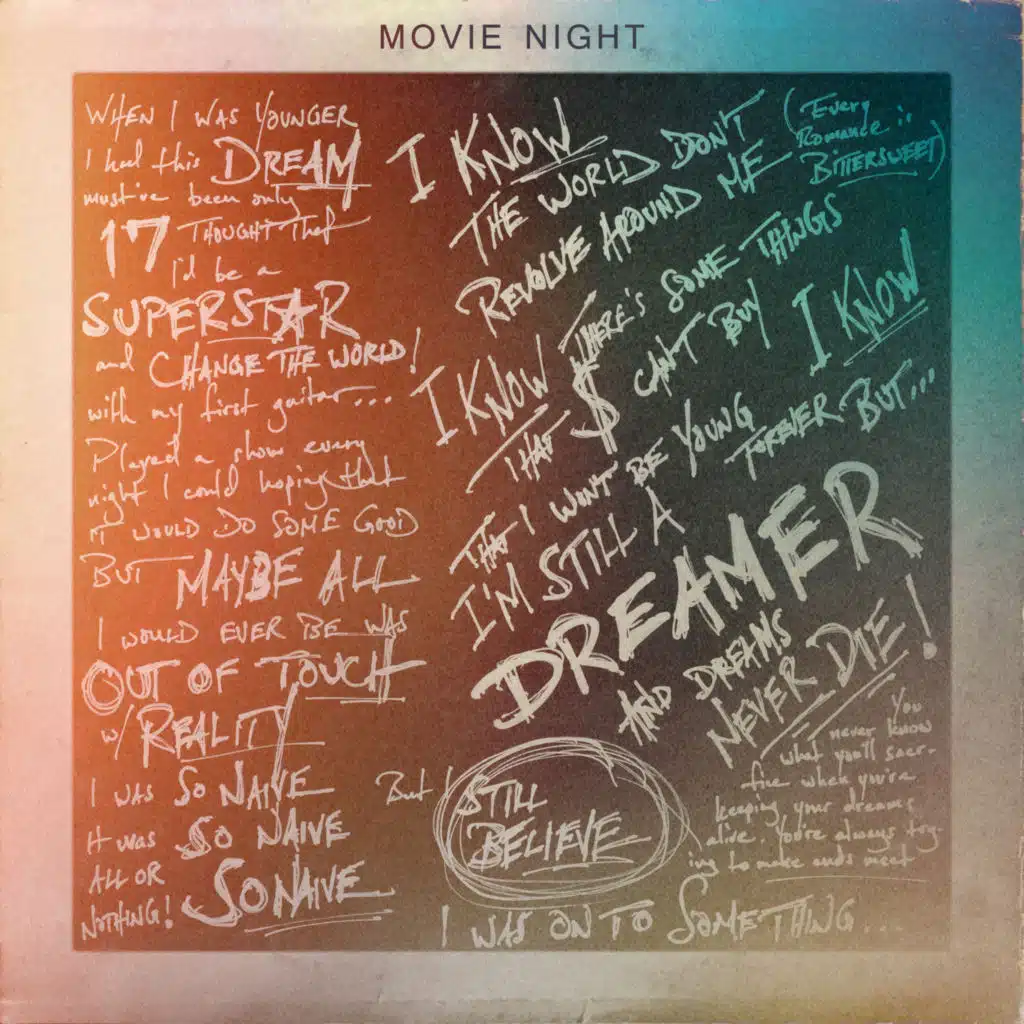 MOVIE NIGHT
WHEN I WAS YOUNGER
I had this DREAM
must've been only
17 THOUGHT THAT
I'd be a
SUPERSTAR
and CHANGE THE WORLD!
with my first guitar...
Played a show every
night I could hoping that
IT WOULD DO SOME GOOD
BUT MAYBE ALL
I WOULD EVER BE WAS
OUT OF TOUCH
W/ REALITY
I WAS SO NAIVE
IT WAS SO NAIVE
ALL OR
NOTHING! SO NAIVE
I KNOW
THE WORLD DON'T
REVOLVE AROUND ME
(Every
Romance is
BITTERSWEET)
I KNOW THERE'S SOME THINGS
THAT $ CAN'T BUY
I KNOW
THAT I WON'T BE YOUNG
FOREVER BUT...
I'M STILL A
DREAMER
AND DREAMS
NEVER DIE!
You
never know
what you'll sacr-
fice when you're
keeping your dreams
alive. You're always try-
ing to make ends meet
But I STILL
BELIEVE
I WAS ON TO SOMETHING...